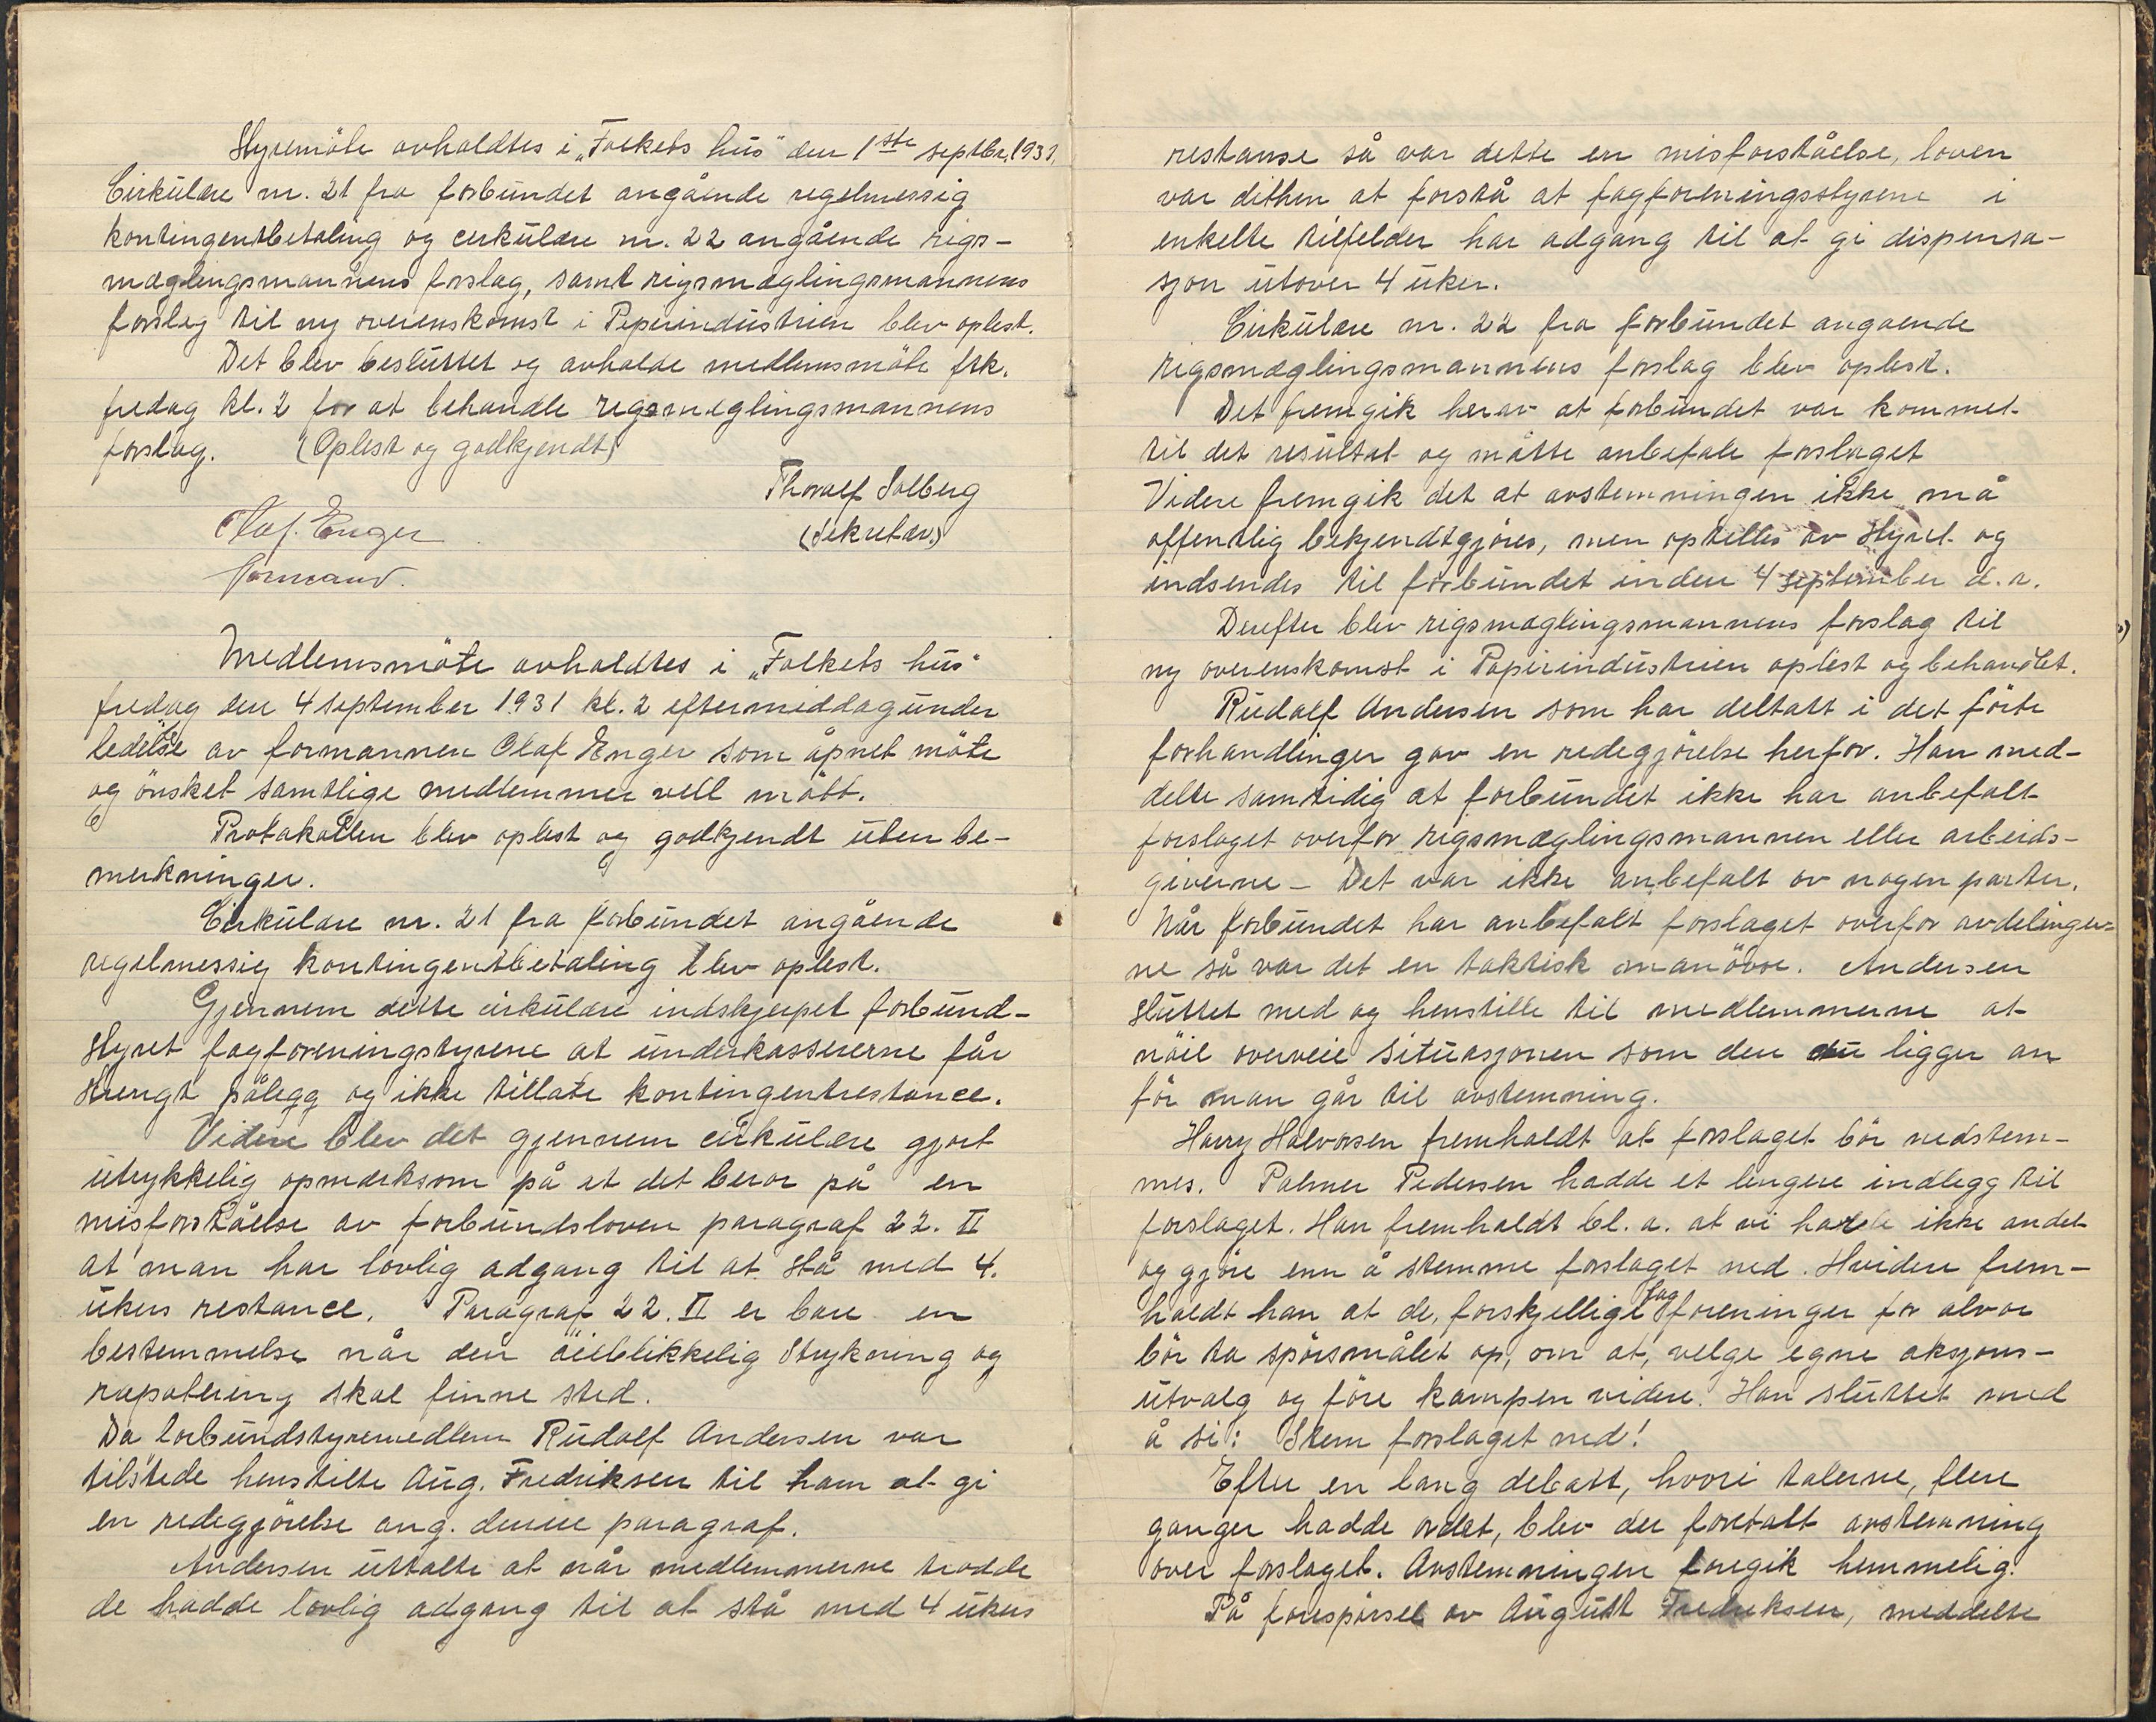 Styremöte avholdtes i „Folkets hus" den 1ste septbr. 1931.
Cirkulære nr. 21 fra forbundet angående regelmessig
kontingentbetaling og cirkulære nr. 22 angående rigs-
mæglingsmannens forslag, samt rigsmæglingsmannens
forslag til ny overenskomst i Papirindustrien blev oplest.
Det blev besluttet og avholde medlemsmöte fsk.
fredag kl. 2 for at behandle rigsmeglingsmannens
forslag. (Oplest og godkjendt)
Thoralf Solberg
(Sekretær.)
Olaf. Enger
Formand.
Medlemsmöte avholdtes i „Folkets hus"
fredag den 4 september 1931 kl. 2 eftermiddag under
ledelse av formannen Olaf Enger som åpnet möte
og önsket samtlige medlemmer vell mött.
Protokollen blev oplest og godkjendt uten be-
merkninger.
Cirkulære nr. 21 fra forbundet angående
regelmessig kontingentbetaling blev oplest.
Gjennem dette cirkulære indskjerpet forbund-
styret fagforeningstyrene at underkassererne får
strengt pålegg og ikke tillate kontingentrestance.
Videre blev det gjennem cirkulære gjort
utrykkelig opmerksom på at det beror på en
misforståelse av forbundsloven paragraf 22. II
at man har lovlig adgang til at stå med 4.
ukers restance. Paragraf 22. II er bare en
bestemmelse når den öieblikkelig strykning og
rapotering skal finne sted.
Da forbundstyremedlem Rudolf Andersen var
tilstede henstilte Aug. Fredriksen til ham at gi
en redegjörelse ang. denne paragraf.
Andersen uttalte at når medlemmerne trodde
de hadde lovlig adgang til at stå med 4 ukers
restanse så var dette en misforståelse, loven
var dithen at forstå at fagforeningsstyrene i
enkelte tilfelder har adgang til at gi dispensa-
sjon utover 4 uker.
Cirkulære nr. 22 fra forbundet angaende
rigsmæglingsmannens forslag blev oplest.
Det fremgik herav at forbundet var kommet
til det resultat og måtte anbefale forslaget
Videre fremgik det at avstemningen ikke må
offentlig bekjendtgjöres, men optelles av styret og
indsendes til forbundet inden 4 september d. a.
Derefter blev rigsmæglingsmannens forslag til
ny overenskomst i Papirindustrien oplest og behandlet.
Rudolf Andersen som har deltatt i det förte
forhandlinger gav en redegjörelse herfor. Han med-
delte samtidig at forbundet ikke har anbefalt
forslaget overfor rigsmæglingsmannen eller arbeids-
giverne – Det var ikke anbefalt av nogen parter.
Når forbundet har anbefalt forslaget overfor avdelinger-
ne så var det en taktisk manövre. Andersen
sluttet med og henstille til medlemmerne at
nöie overveie situasjonen som den nu ligger an
för man går til avstemning.
Harry Halvorsen fremholdt at forslaget bör nedstem-
mes. Palmer Pedersen hadde et lengere indlegg til
forslaget. Han fremholdt bl. a. at vi hadde ikke andet
og gjöre enn å stemme forslaget ned. Hvidere frem-
holdt han at de, forskjellige fagforeninger for alvor
bör ta spörsmålet op, om at, velge egne aksjons-
utvalg og före kampen videre. Han sluttet med
å si: Stem forslaget ned!
Efter en lang debatt, hvori talerne, flere
ganger hadde ordet, blev der foretatt avstemning
over forslaget. Avstemningen foregik hemmelig.
På forespörsel av August Fredriksen, meddelte